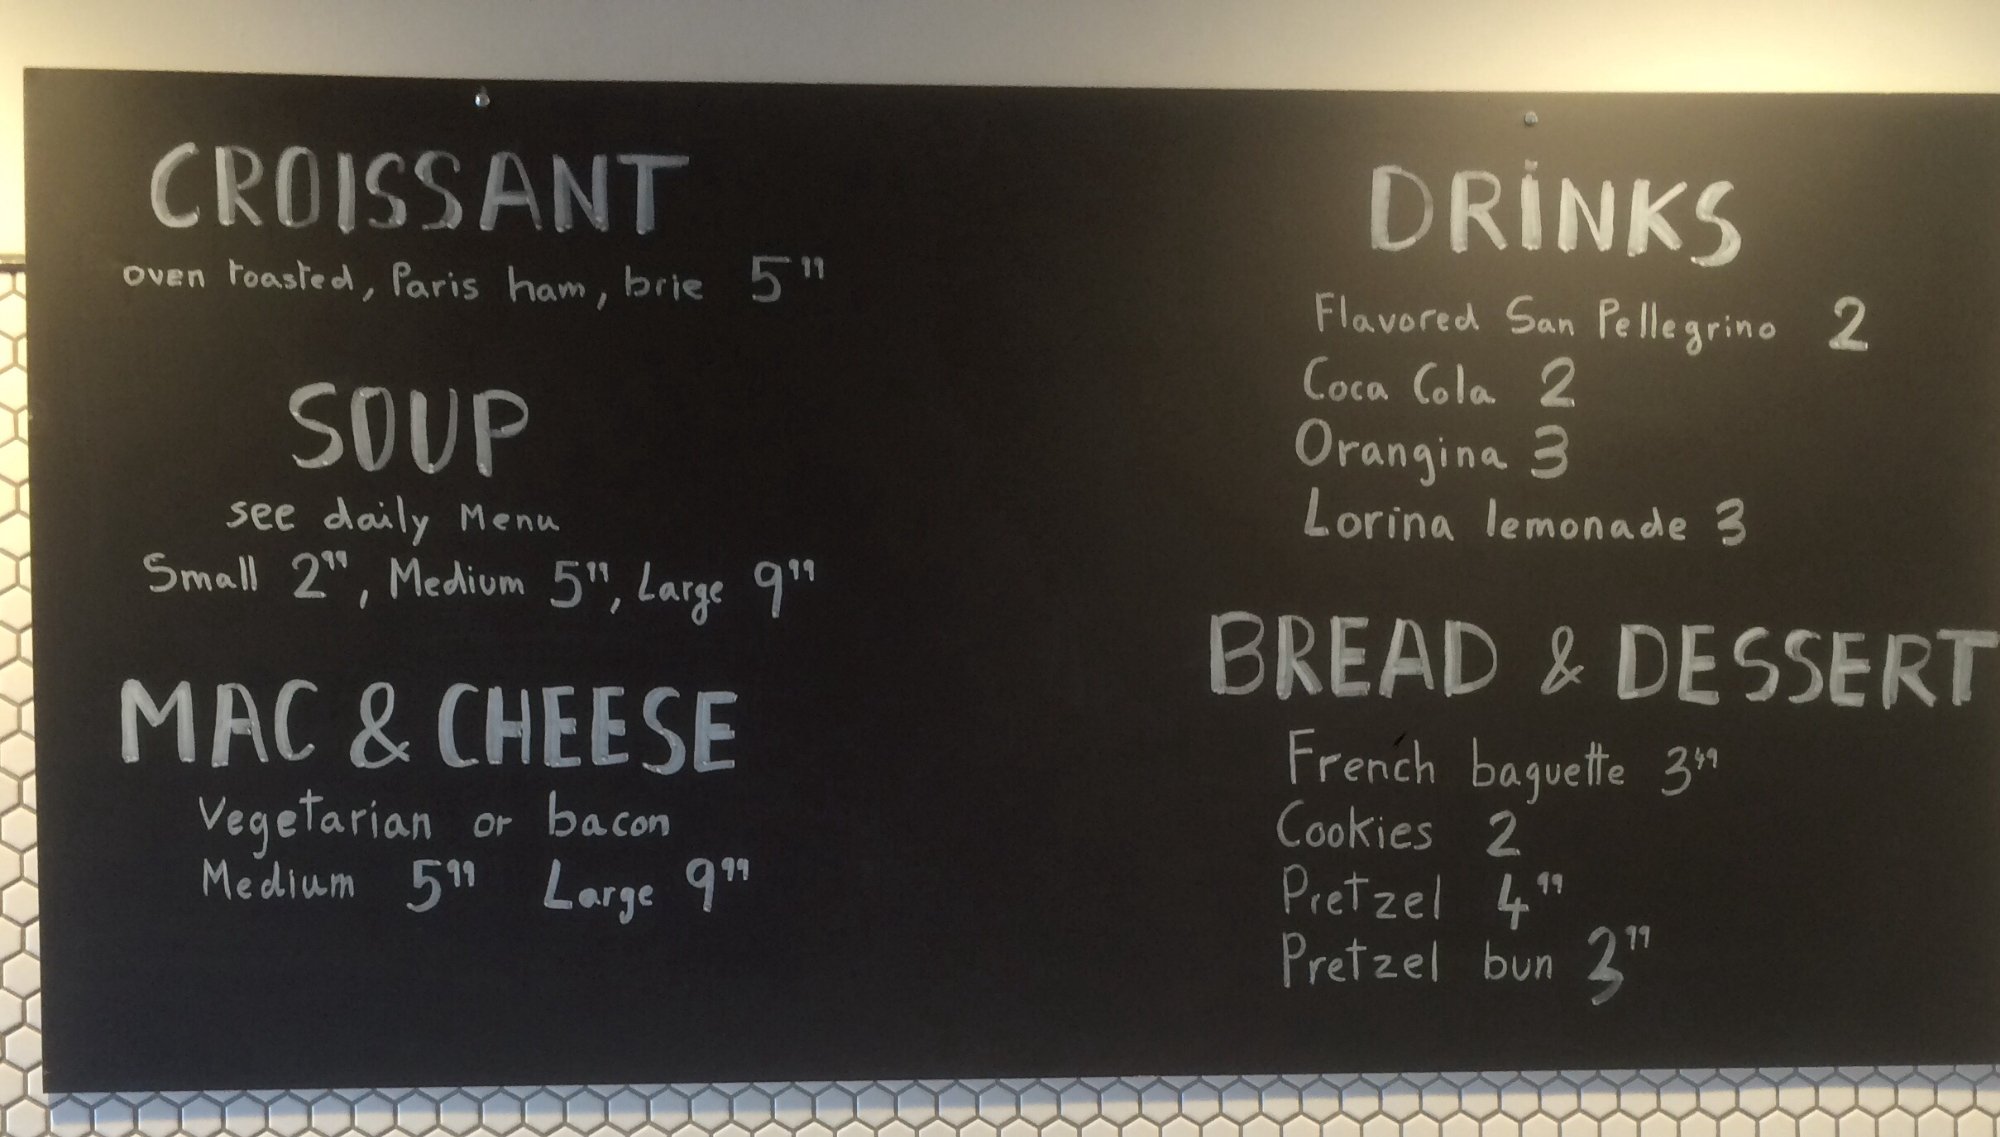 CROISSANT
oven toasted, Paris ham, brie 5⁹⁹
SOUP
see daily Menu
Small 2⁹⁹, Medium 5⁹⁹, Large 9⁹⁹
MAC & CHEESE
Vegetarian or bacon
Medium 5⁹⁹ Large 9⁹⁹
DRINKS
Flavored San Pellegrino 2
Coca Cola 2
Orangina 3
Lorina lemonade 3
BREAD & DESSERT
French baguette 3⁴⁹
Cookies 2
Pretzel 4⁹⁹
Pretzel bun 3⁹⁹